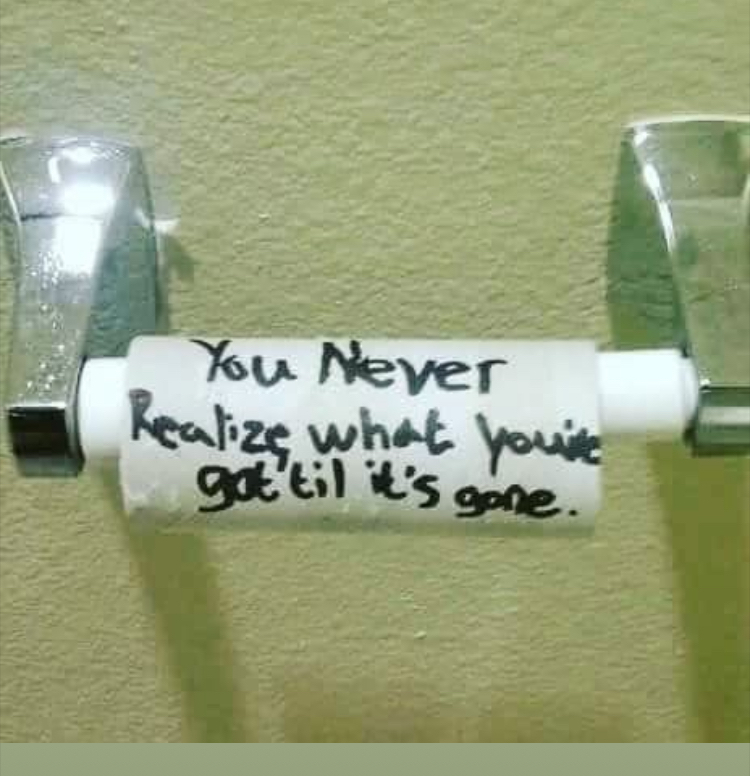 You Never
Realize what you've
got 'til it's gone.